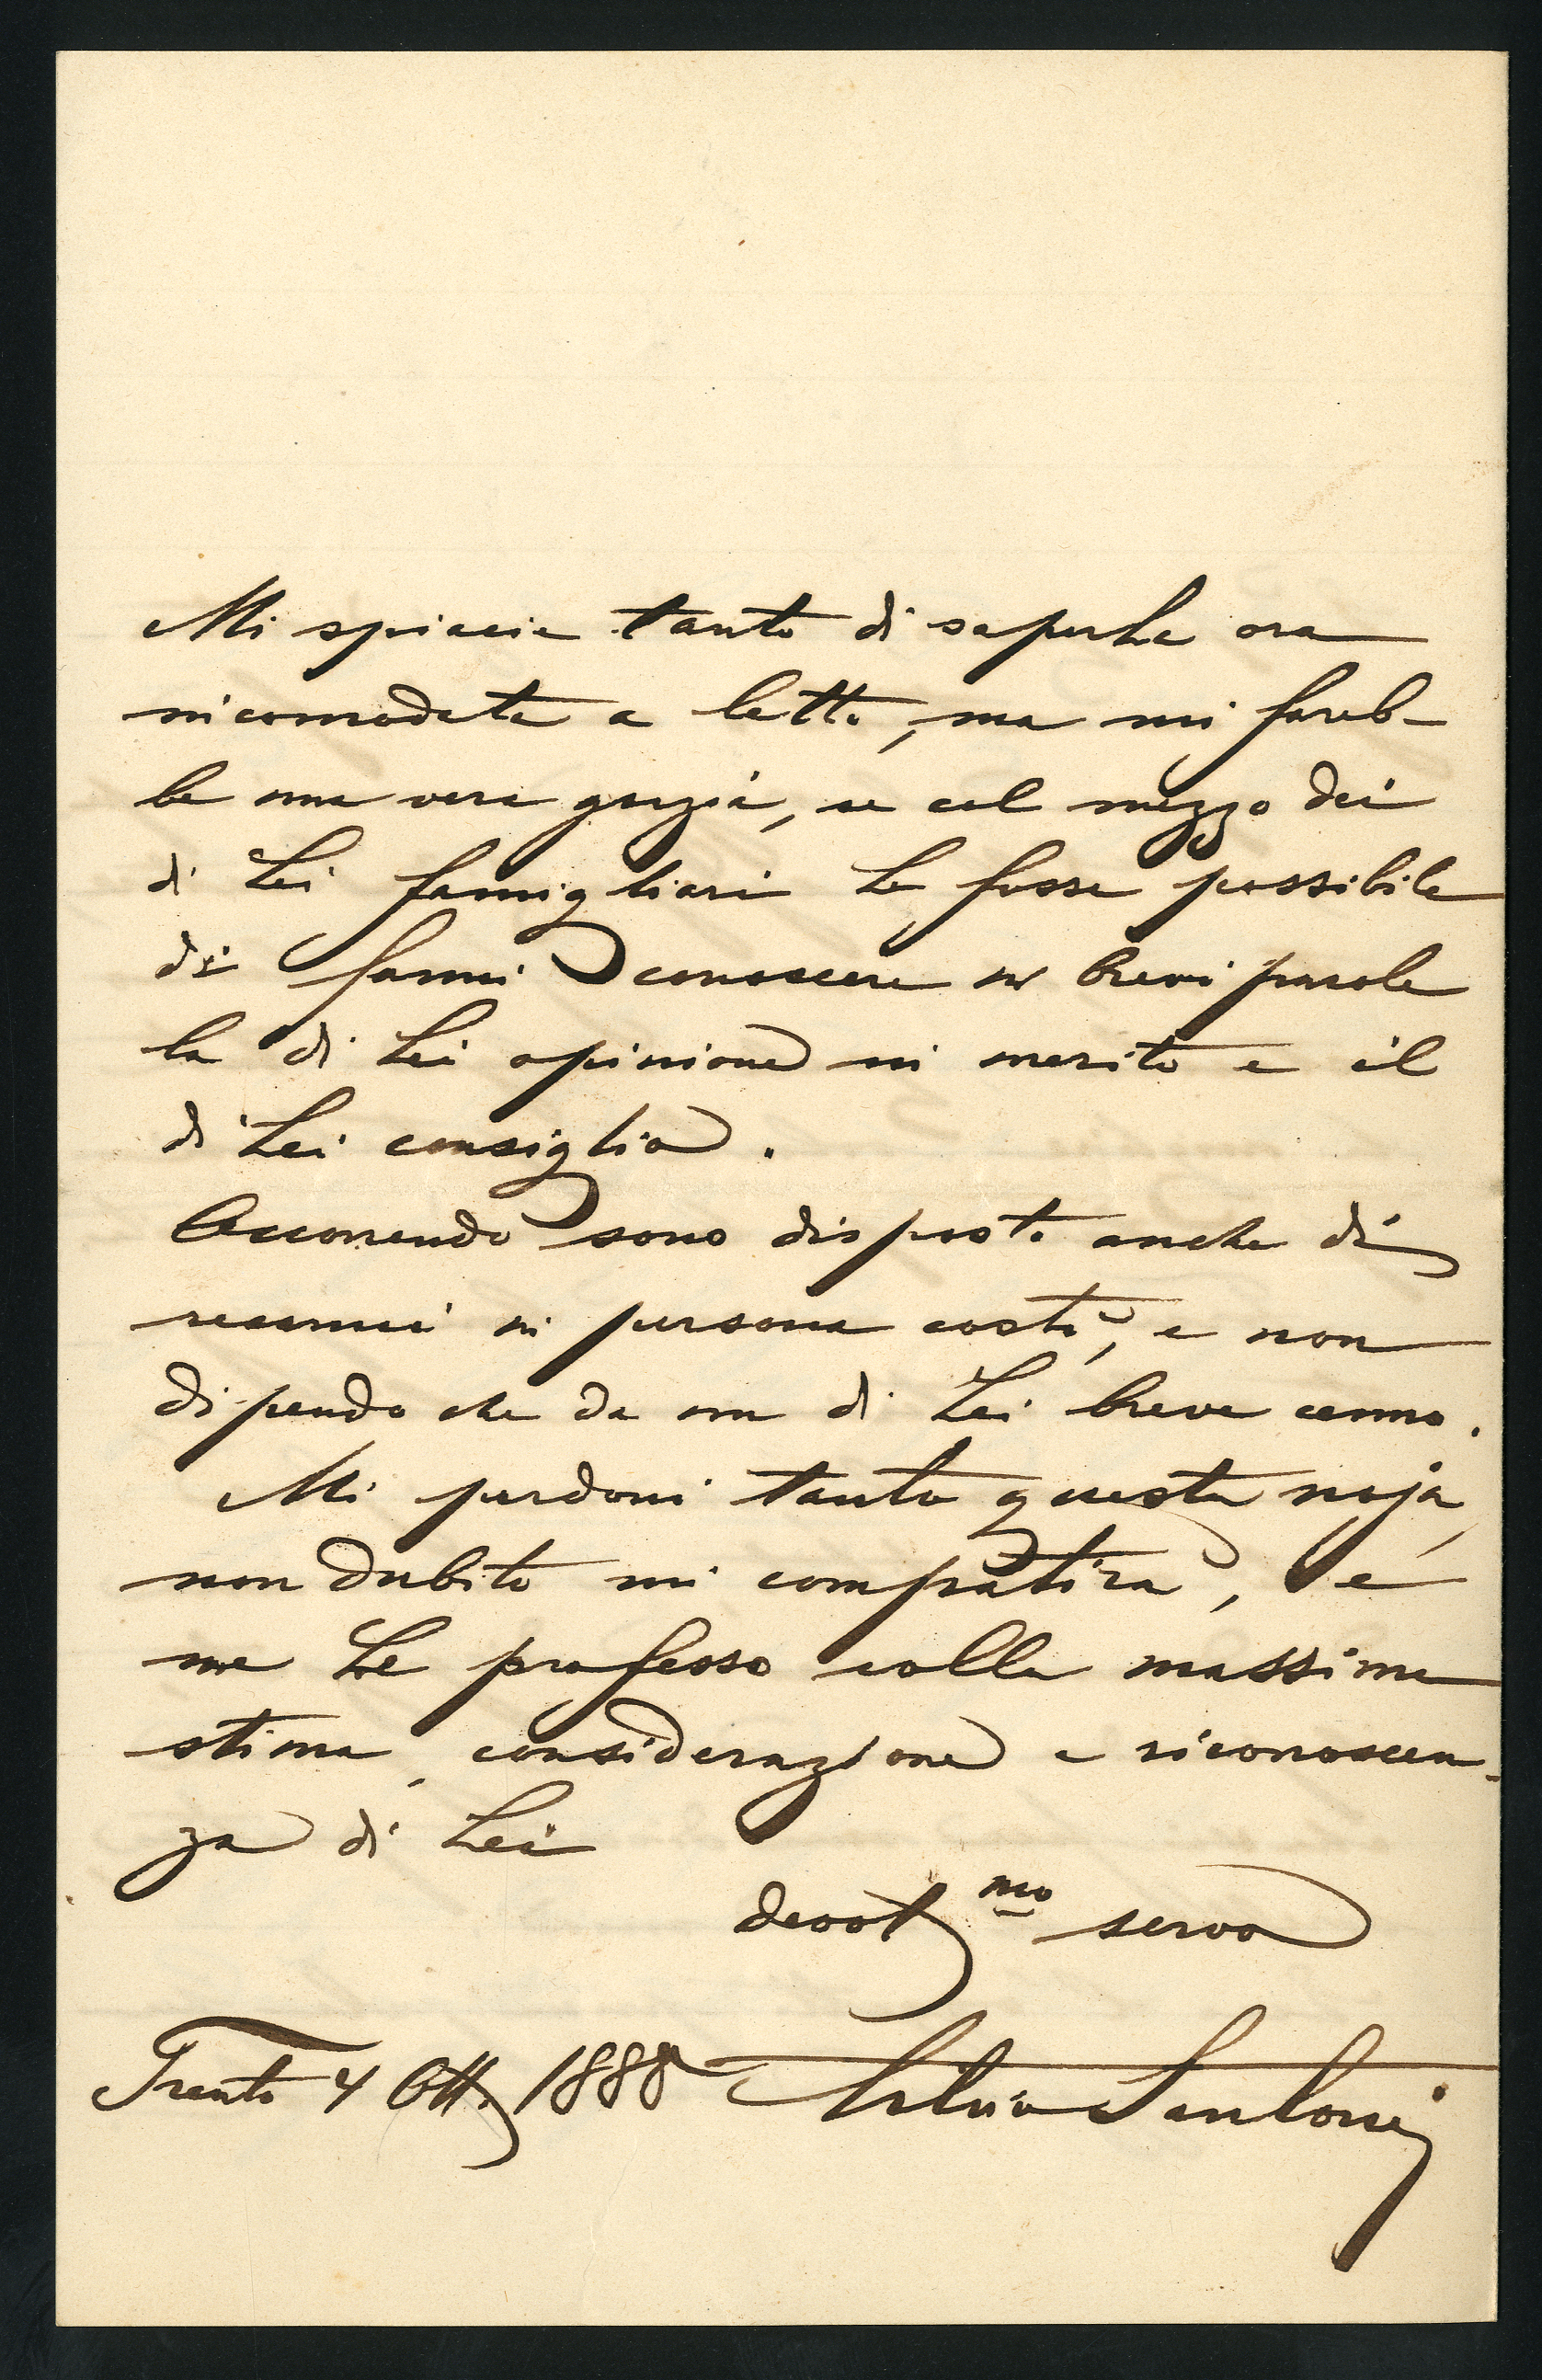 Mi spiacie tanto di saperLa ora
incomodata a letto, ma mi fareb-
be una vera grazia, se col mezzo dei
di Lei famigliari Le fosse possibile
di farmi conoscere in brevi parole
la di Lei opinione in merito e il
di Lei consiglio.
Occorrendo sono disposto anche di
recarmi in persona costì, e non
dipendo che da un di Lei breve cenno.
Mi perdoni tanto questa noja,
non dubito mi compatirà, e
me Le professo colla massima
stima, considerazione e riconoscen-
za di Lei
devot.mo servo
Trento 4 Ott. 1888 Silvio Santoni